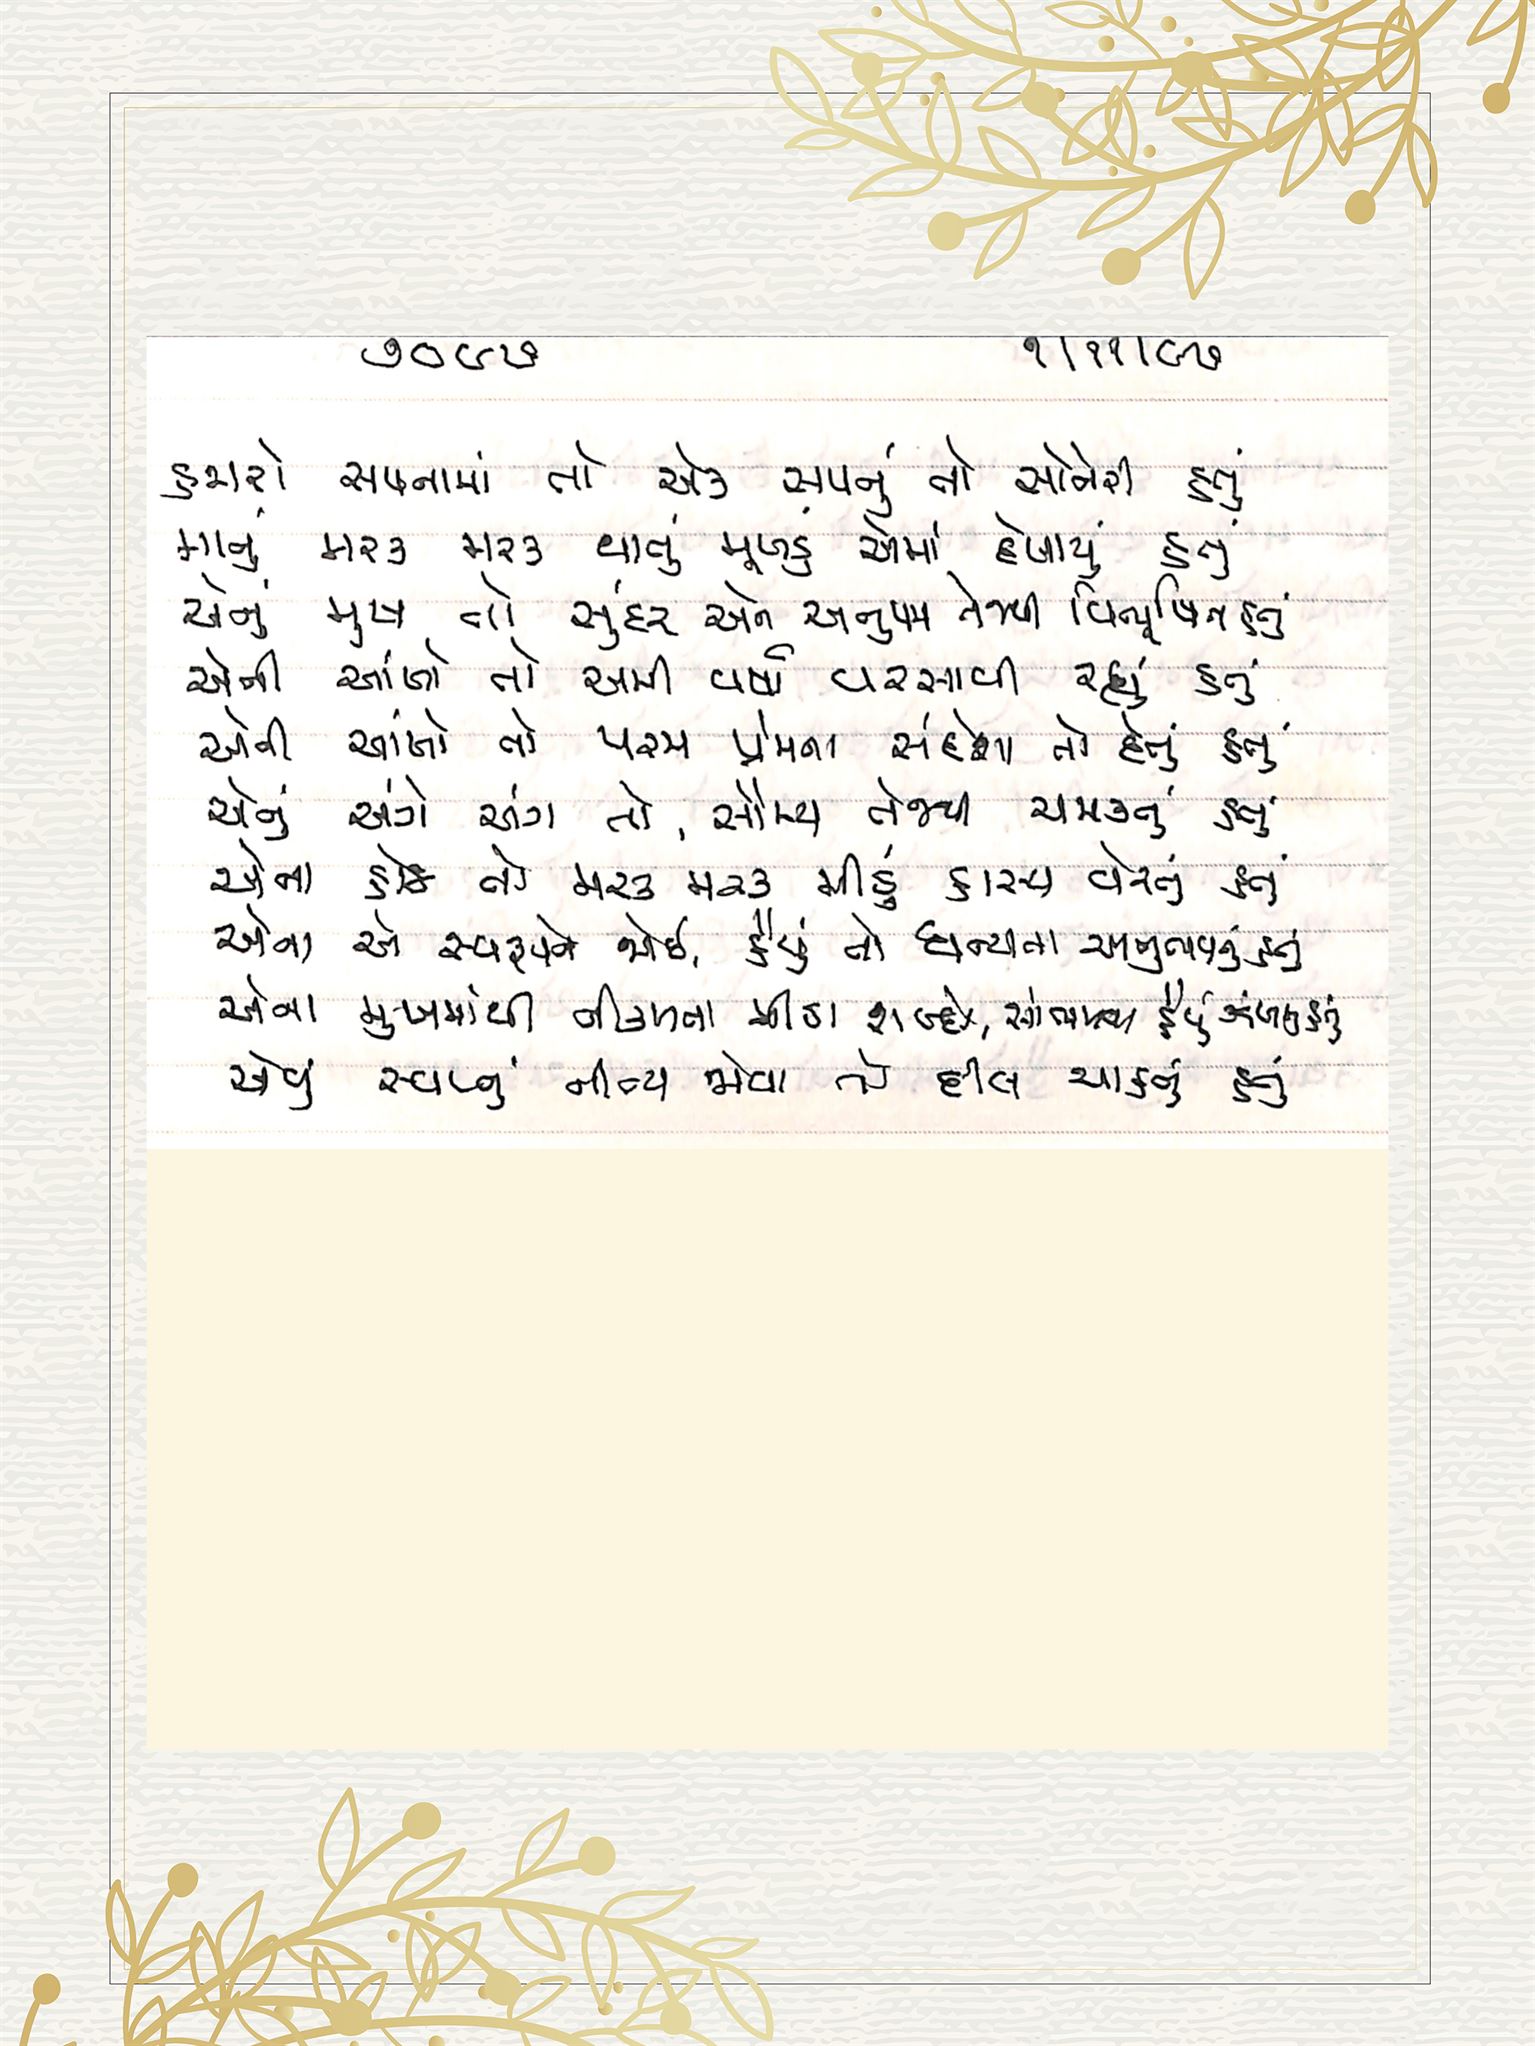 ૭૦૯૭ ૧/૧૧/૯૭
હજારો સપનામાં તો એક સપનું તો સોનેરી હતું
માનું મરક મરક થાતું મૂખડું એમાં દેખાયું હતું
એનું મુખ તો સુંદર એને અનુપમ તેજથી વિભૂષિત હતું
એની આંખો તો અમી વર્ષા વરસાવી રહ્યું હતું
એની આંખો તો પરમ પ્રેમના સંદેશા તો દેતું હતું
એનું અંગે અંગ તો, સૌમ્ય તેજથી ચમકતું હતું
એના હોઠ તો મરક મરક મીઠું હાસ્ય વેરતું હતું
એના એ સ્વરૂપને જોઈ, હૈયું તો ધન્યતા અનુભવતું હતું
એના મુખમાંથી નીકળતા મીઠા શબ્દો, સાંભળવા હૈયું ઝંખતું હતું
એવું સ્વપ્નું નીત્ય જોવા તો દીલ ચાહતું હતું